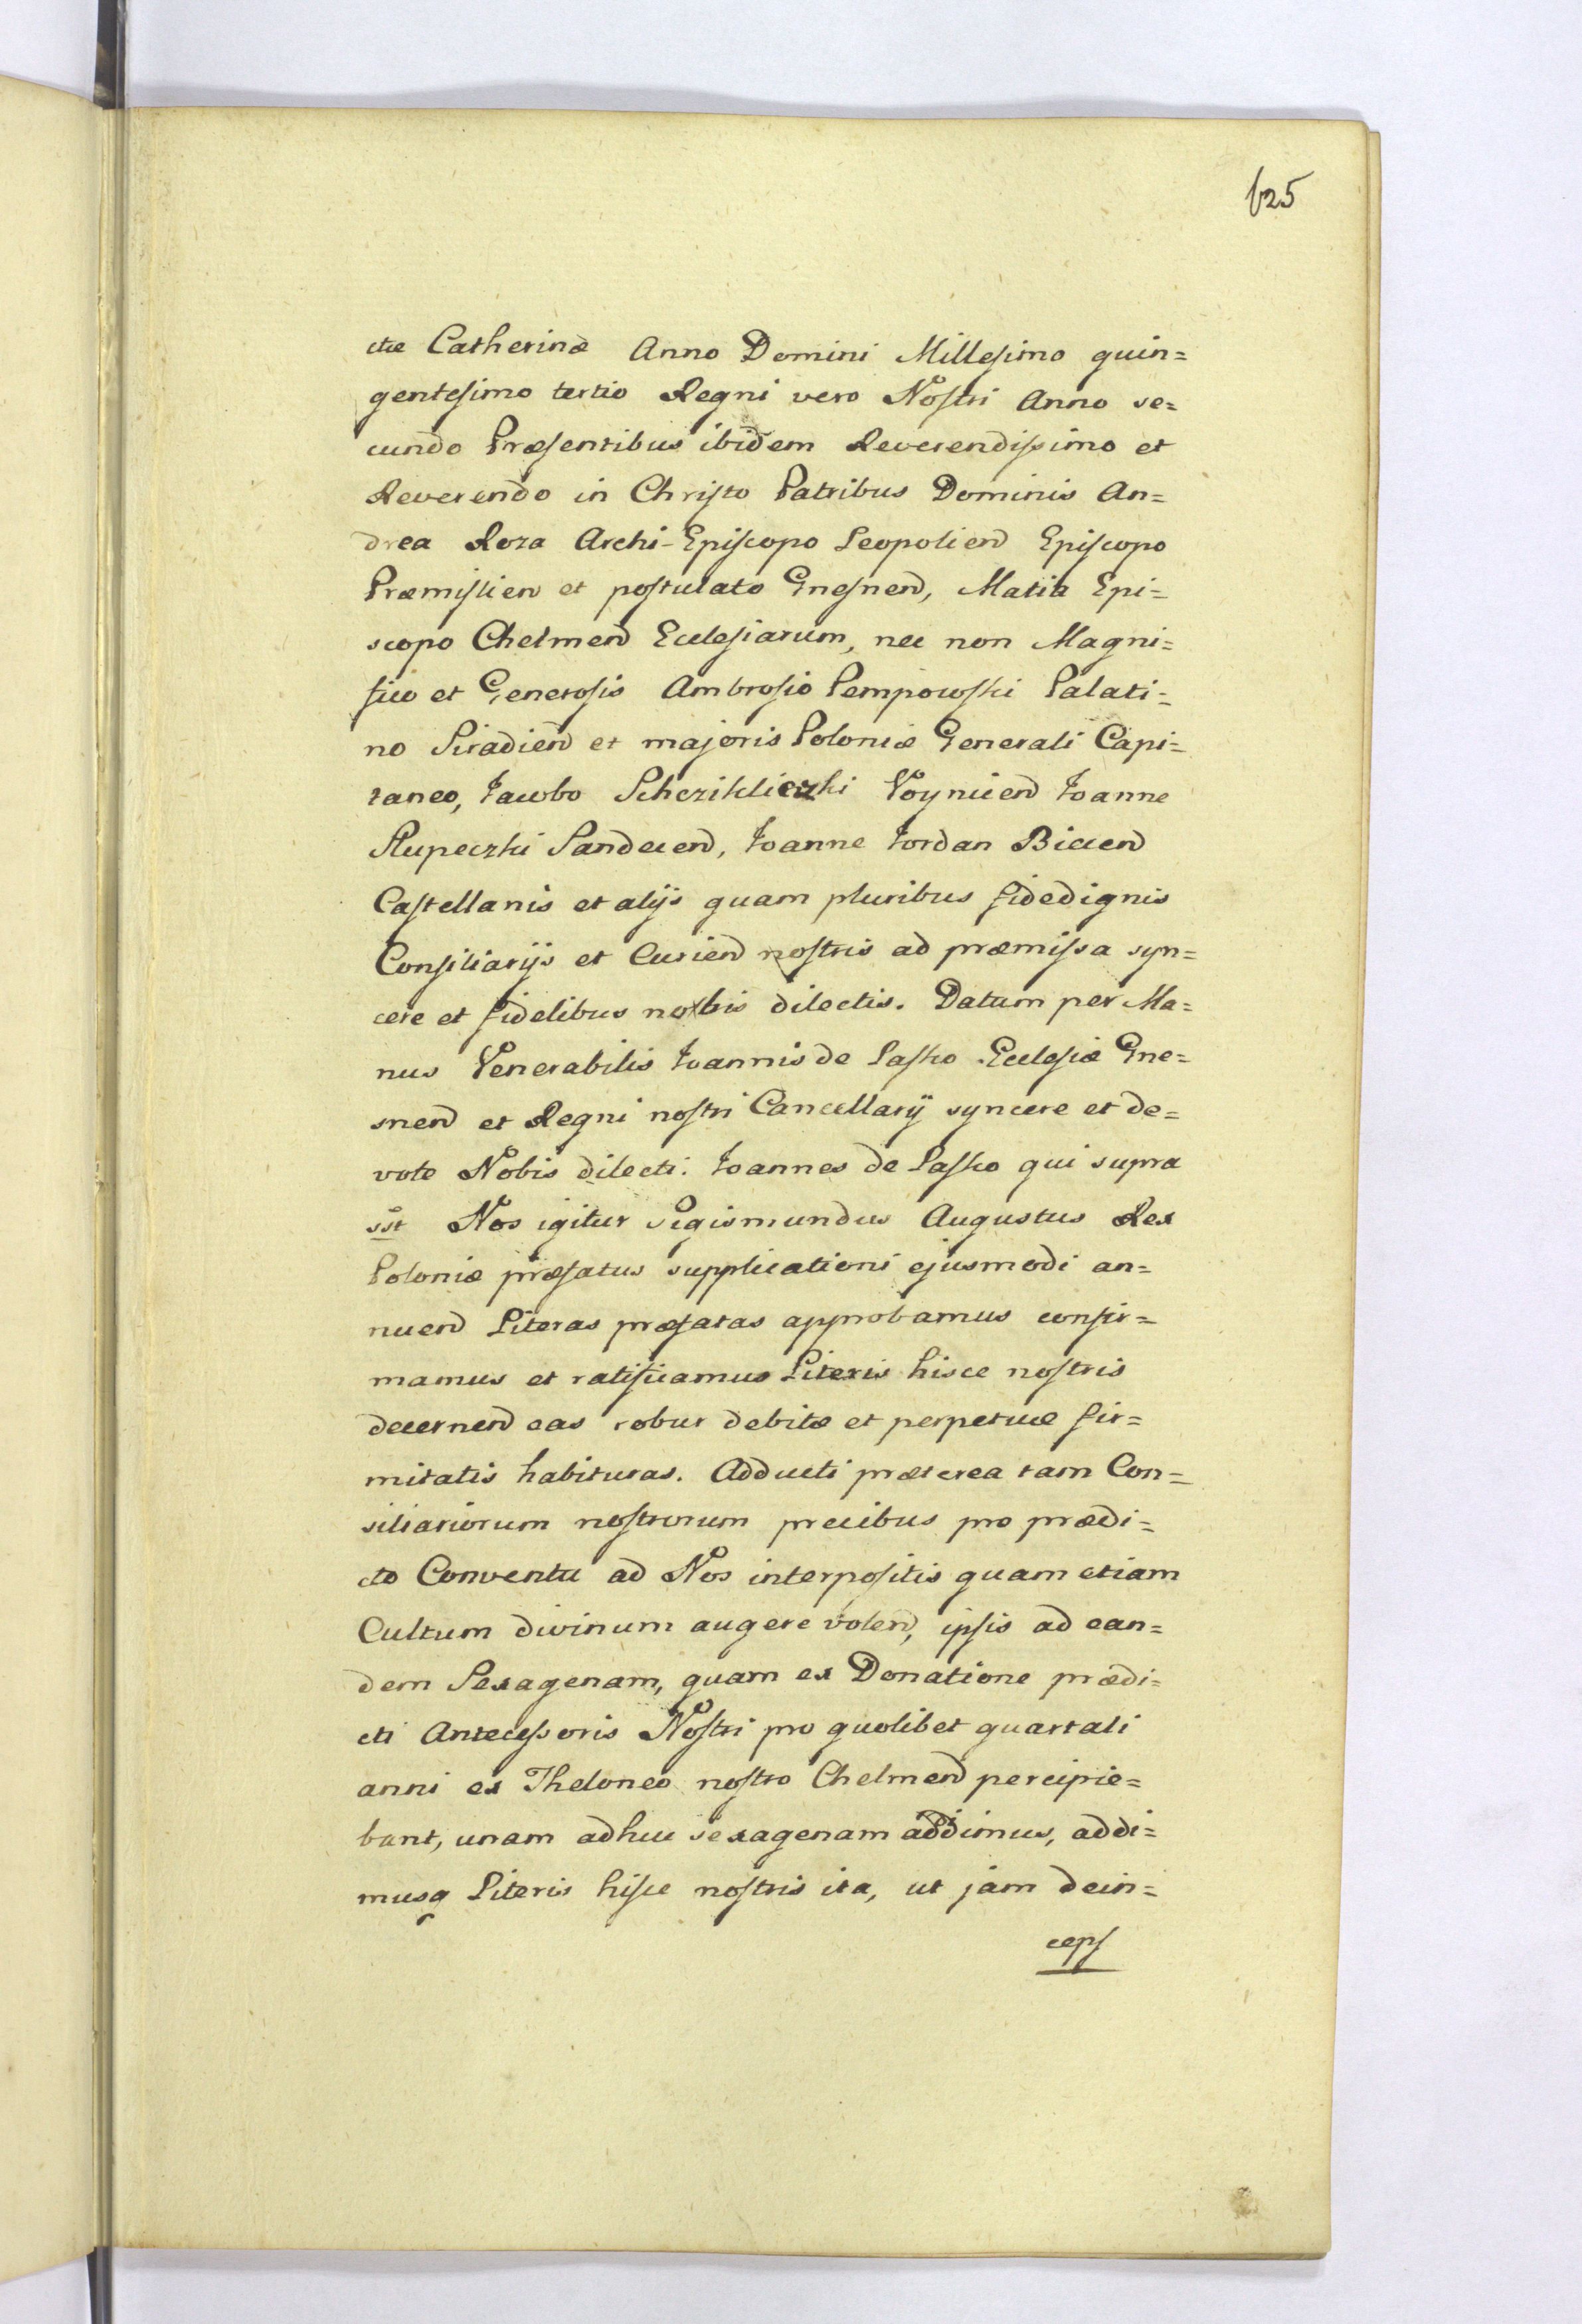 625
ctæ Catherinæ Anno Domini Millesimo quin=
gentesimo tertio Regni vero Nostri Anno se=
cundo Præsentibus ibidem Reverendissimo et
Reverendo in Christo Patribus Dominis An=
drea Roza Archi-Episcopo Leopolien̄ Episcopo
Præmislien̄ et postulato Gnesnen̄, Matia Epi=
scopo Chelmen̄ Ecclesiarum, nec non Magni=
fico et Generosis Ambrosio Pempowski Palati=
no Siradien̄ et majoris Poloniæ Generali Capi=
taneo, Jacobo Scheziklieczki Voynicien̄ Joanne
Slupeczki Sandecen̄, Joanne Jordan Biecen̄
Castellanis et alijs quam pluribus fidedignis
Consiliarijs et Curien̄ nostris ad præmissa syn=
cere et fidelibus nobis dilectis. Datum per Ma=
nus Venerabilis Joannis de Lasko Ecclesiæ Gne=
snen̄ et Regni nostri Cancellarij syncere et de=
vote Nobis dilecti. Joannes de Lasko qui supra
sst Nos igitur Sigismundus Augustus Rex
Poloniæ præfatus supplicationi ejusmodi an=
nuen̄ Literas præfatas approbamus confir=
mamus et ratificamus Literis hisce nostris
decernen̄ eas robur debitæ et perpetuæ fir=
mitatis habituras. Adducti præterea tam Con=
siliariorum nostrorum precibus pro prædi=
cto Conventu ad Nos interpositis quam etiam
Cultum divinum augere volen̄, ipsis ad ean=
dem Sexagenam, quam ex Donatione prædi=
cti Antecessoris Nostri pro quolibet quartali
anni ex Theloneo nostro Chelmen̄ percipie=
bant, unam adhuc sexagenam addimus, addi=
musq Literis hisce nostris ita, ut jam dein=
ceps